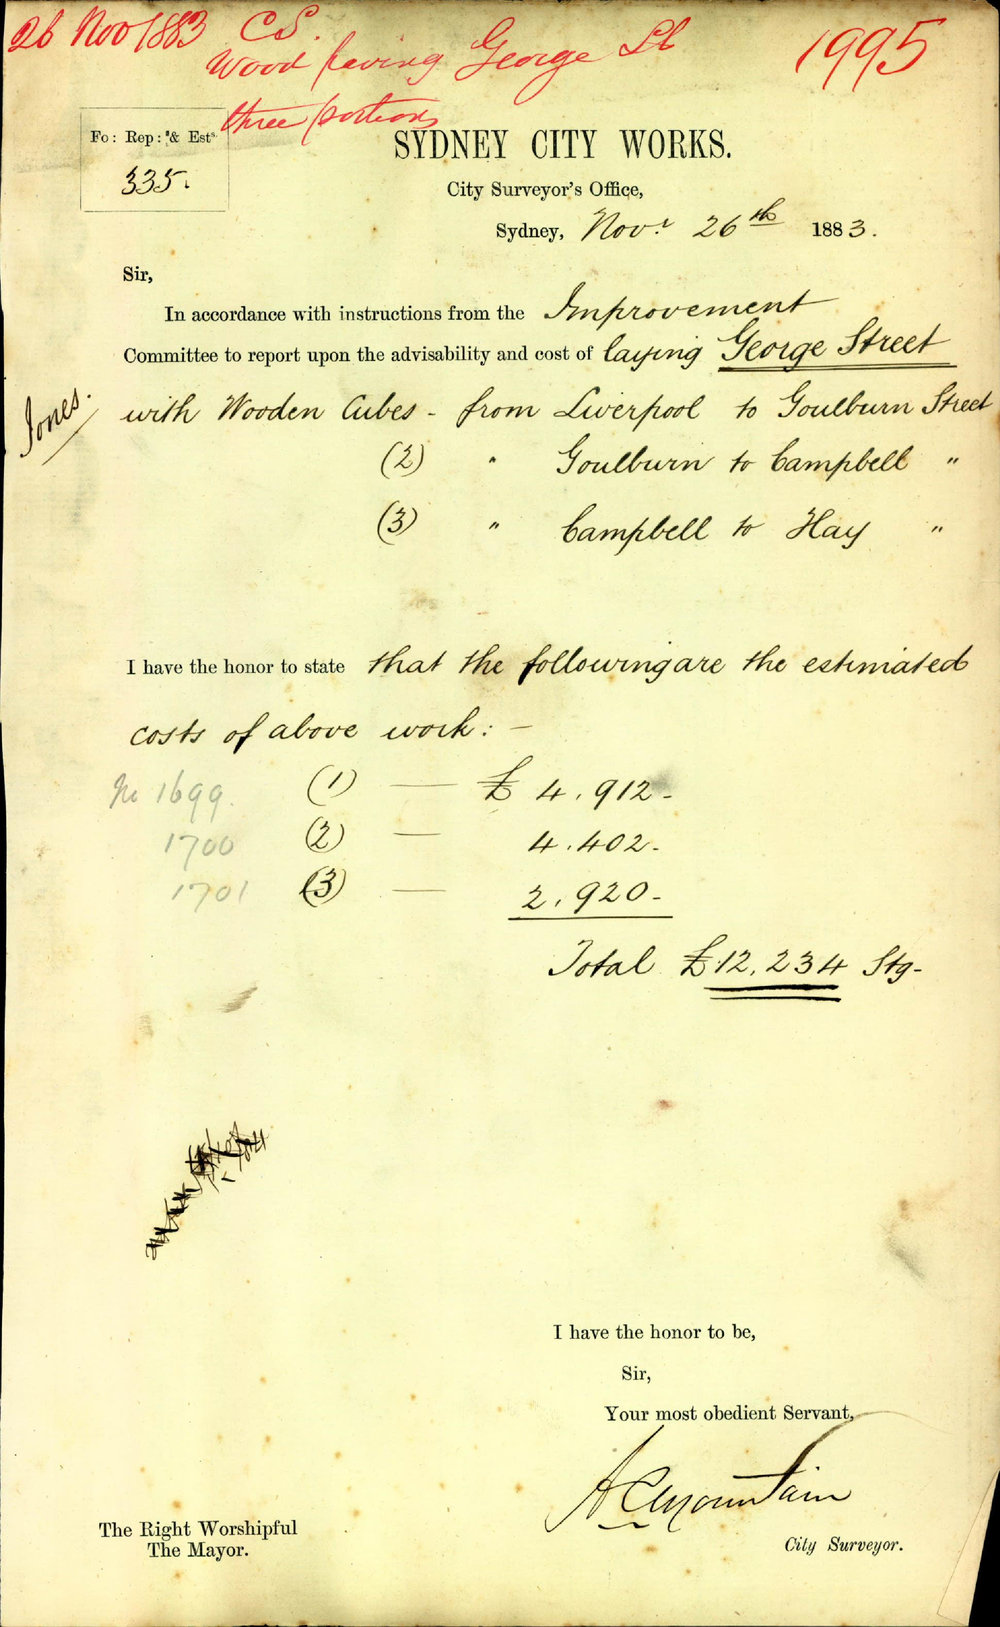 26 Nov 1883 CS. 1995
Wood paving George St
three portions
Fo: Rep: & Ests.
335.
SYDNEY CITY WORKS.
City Surveyor's Office,
Sydney, Novr. 26th 1883.
Sir,
In accordance with instructions from the Improvement
Committee to report upon the advisability and cost of laying George Street
Jones.
with Wooden Cubes - from Liverpool to Goulburn Street
(2) " Goulburn to Campbell "
(3) " Campbell to Hay "
I have the honor to state that the following are the estimated
costs of above work: -
No 1699. (1) — £ 4,912-
1700 (2) — 4.402-
1701 (3) — 2,920-
Total £12,234 Stg-
I have the honor to be,
Sir,
Your most obedient Servant,
A C Mountain
City Surveyor.
The Right Worshipful
The Mayor.